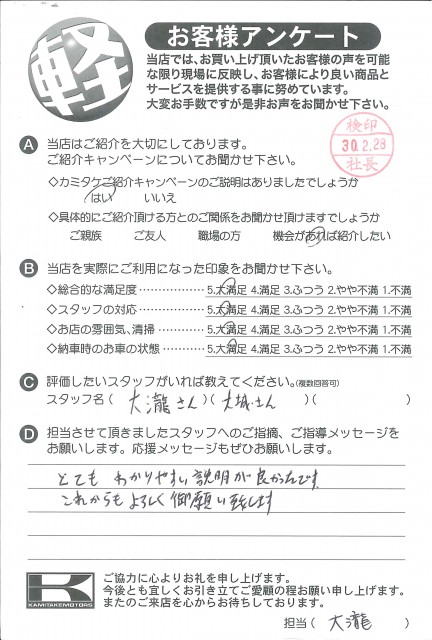 軽
お客様アンケート
当店では、お買い上げ頂いたお客様の声を可能
な限り現場に反映し、お客様により良い商品と
サービスを提供する事に努めています。
大変お手数ですが是非お声をお聞かせ下さい。
検印
30.2.28
社長
A 当店はご紹介を大切にしております。
ご紹介キャンペーンについてお聞かせ下さい。
◇カミタケご紹介キャンペーンのご説明はありましたでしょうか
はい いいえ
◇具体的にご紹介頂ける方とのご関係をお聞かせ頂けますでしょうか
ご親族 ご友人 職場の方 機会があれば紹介したい
B 当店を実際にご利用になった印象をお聞かせ下さい。
◇総合的な満足度 ‥‥‥‥‥ 5.大満足 4.満足 3.ふつう 2.やや不満 1.不満
◇スタッフの対応 ‥‥‥‥‥ 5.大満足 4.満足 3.ふつう 2.やや不満 1.不満
◇お店の雰囲気、清掃 ‥‥‥ 5.大満足 4.満足 3.ふつう 2.やや不満 1.不満
◇納車時のお車の状態 ‥‥‥ 5.大満足 4.満足 3.ふつう 2.やや不満 1.不満
C 評価したいスタッフがいれば教えてください。(複数回答可)
スタッフ名( 大瀧さん )( 大城さん )( )
D 担当させて頂きましたスタッフへのご指摘、ご指導メッセージを
お願いします。応援メッセージもぜひお願いします。
とても わかりやすい説明が良かったです。
これからもよろしく御願い致します
K
KAMITAKEMOTORS
ご協力に心よりお礼を申し上げます。
今後とも宜しくお引き立てご愛顧の程お願い申し上げます。
またのご来店を心からお待ちしております。
担当( 大瀧 )